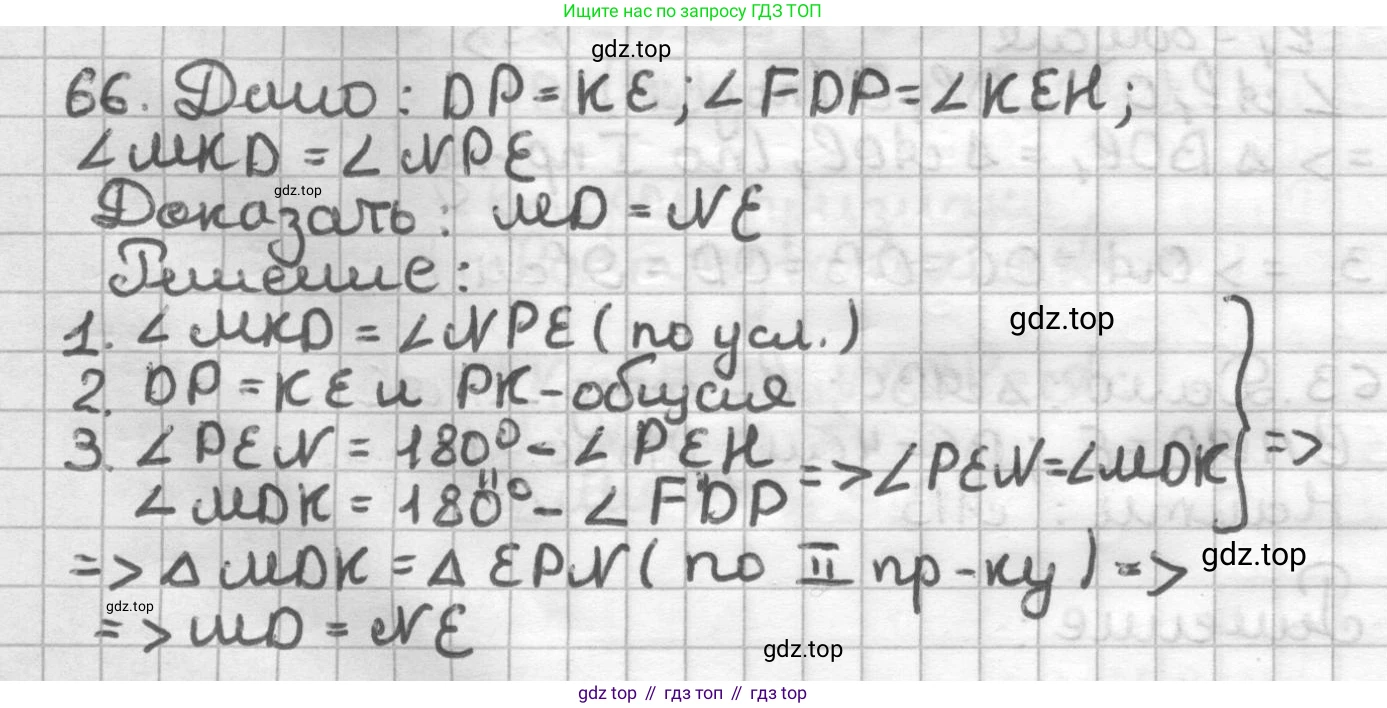 Ищите нас по запросу ГДЗ ТОП
gdz.top
66. Дано: DP = KE; ∠FDP = ∠KEH;
∠MKD = ∠NPE
gdz.top
Доказать: MD = NE
Решение:
1. ∠MKD = ∠NPE (по усл.)
gdz.top
2. DP = KE и PK - общая
3. ∠PEN = 180° - ∠PEH
=> ∠PEN = ∠MDK } =>
∠MDK = 180° - ∠FDP
=> △MDK = △EPN (по II пр-ку) =>
gdz.top
gdz.top
=> MD = NE
gdz.top
gdz top // гдз топ // gdz top